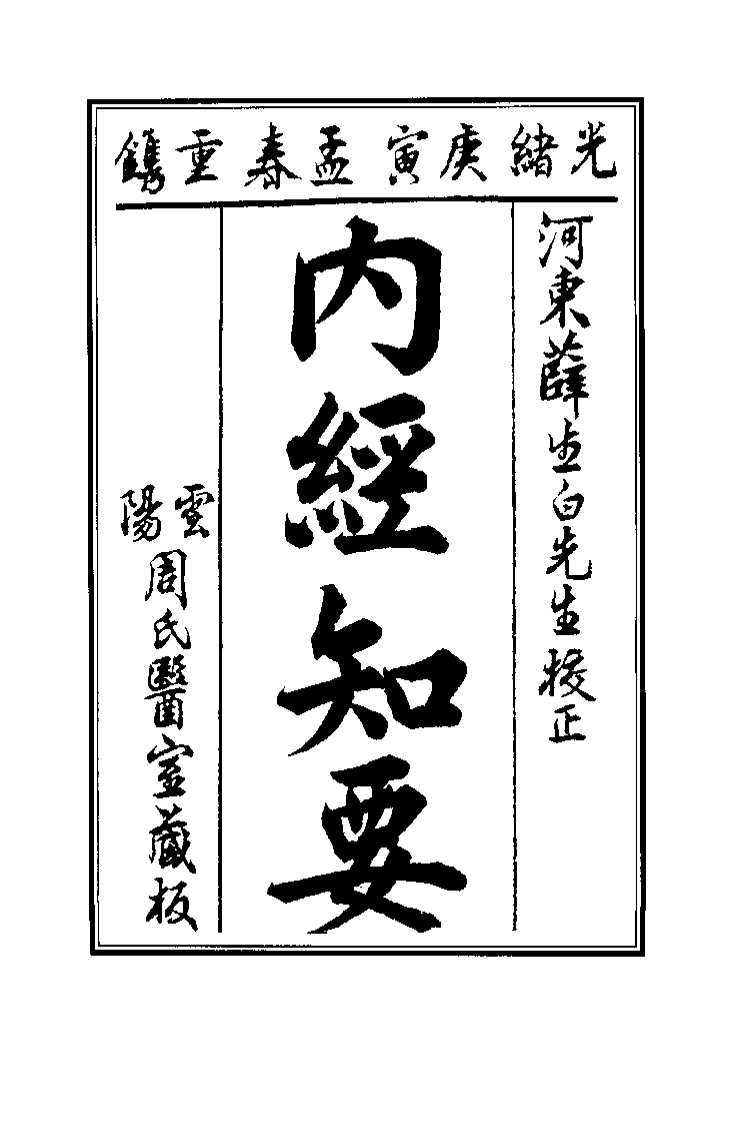 光緒庚寅孟春重鐫
河東薛生白先生校正
內經知要
雲陽周氏醫室藏板